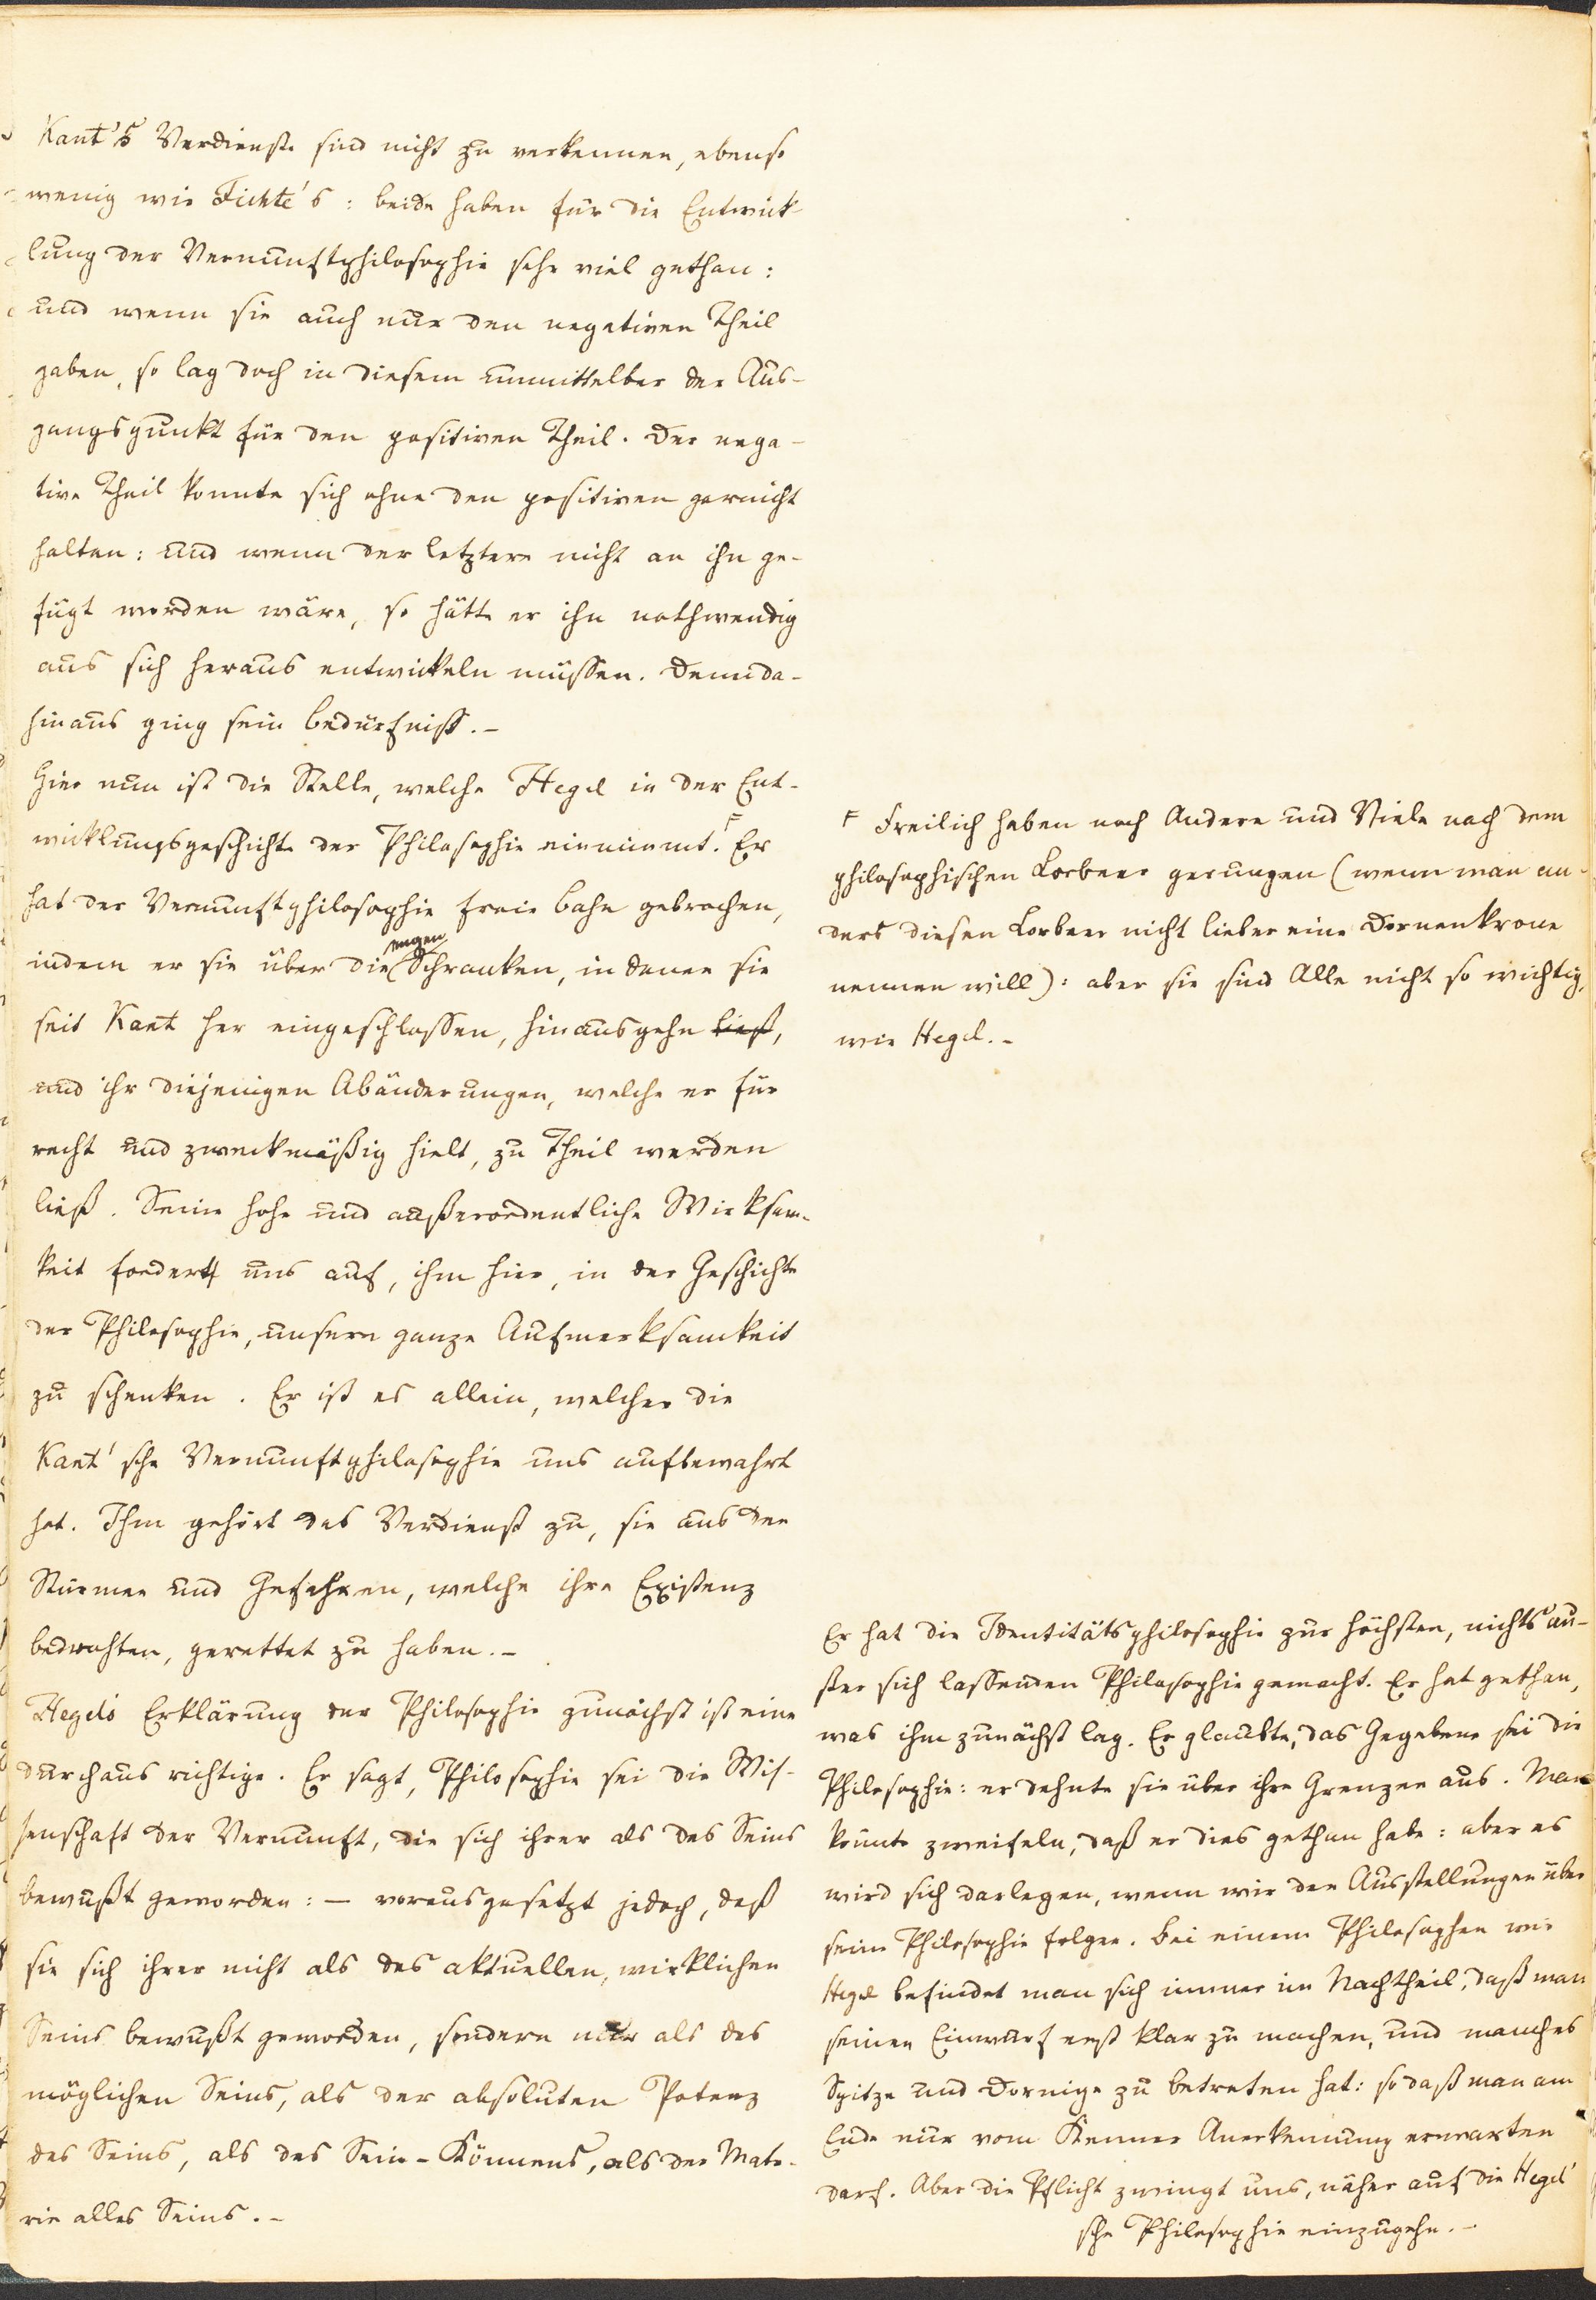 Kant's Verdienste sind nicht zu verkennen, ebenso
wenig wie Fichte's: beide haben für die Entwick-
lung der Vernunftphilosophie sehr viel gethan:
und wenn sie auch nur den negativen Theil
gaben, so lag doch in diesem unmittelbar der Aus-
gangspunkt für den positiven Theil. Der nega-
tive Theil konnte sich ohne den positiven garnicht
halten: und wenn der letztere nicht an ihn ge-
fügt worden wäre, so hätte er ihn nothwendig
aus sich heraus entwickeln müssen. Denn da-
hinaus ging sein Bedürfniss.-
Hier nun ist die Stelle, welche Hegel in der Ent-
wicklungsgeschichte der Philosophie einnimmt.F Er
hat der Vernunftphilosophie freie Bahn gebrochen,
engen
indem er sie über die Schranken, in denen sie
seit Kant her eingeschlossen, hinausgehn ließ,
und ihr diejenigen Abänderungen, welche er für
recht und zweckmäßig hielt, zu Theil werden
ließ. Seine hohe und außerordentliche Wirksam-
keit fordert uns auf, ihm hier, in der Geschichte
der Philosophie, unsere ganze Aufmerksamkeit
zu schenken. Er ist es allein, welcher die
Kant'sche Vernunftphilosophie uns aufbewahrt
hat. Ihm gehört das Verdienst zu, sie aus den
Stürmen und Gefahren, welche ihre Existenz
bedrohten, gerettet zu haben.-
Hegels Erklärung der Philosophie zunächst ist eine
durchaus richtige. Er sagt, Philosophie sei die Wis-
senschaft der Vernunft, die sich ihrer als des Seins
bewußt geworden: — vorausgesetzt jedoch, daß
sie sich ihrer nicht als des aktuellen, wirklichen
Seins bewußt geworden, sondern nur als des
möglichen Seins, als der absoluten Potenz
des Seins, als des Sein-Könnens, als der Mate-
rie alles Seins.-
F Freilich haben noch Andere und Viele nach dem
philosophischen Lorbeer gerungen (wenn man an-
ders diesen Lorbeer nicht lieber eine Dornenkrone
nennen will): aber sie sind Alle nicht so wichtig,
wie Hegel.-
Er hat die Identitätsphilosophie zur höchsten, nichts au-
ßer sich lassenden Philosophie gemacht. Er hat gethan,
was ihm zunächst lag. Er glaubte, das Gegebene sei die
Philosophie: er dehnte sie über ihre Grenzen aus. Man
könnte zweifeln, daß er dies gethan habe: aber es
wird sich darlegen, wenn wir den Ausstellungen über
seine Philosophie folgen. Bei einem Philosophen wie
Hegel befindet man sich immer im Nachtheil, daß man
seinen Einwurf erst klar zu machen, und manches
Spitze und Dornige zu betreten hat: so daß man am
Ende nur vom Kenner Anerkennung erwarten
darf. Aber die Pflicht zwingt uns, näher auf die Hegel'
sche Philosophie einzugehn.-